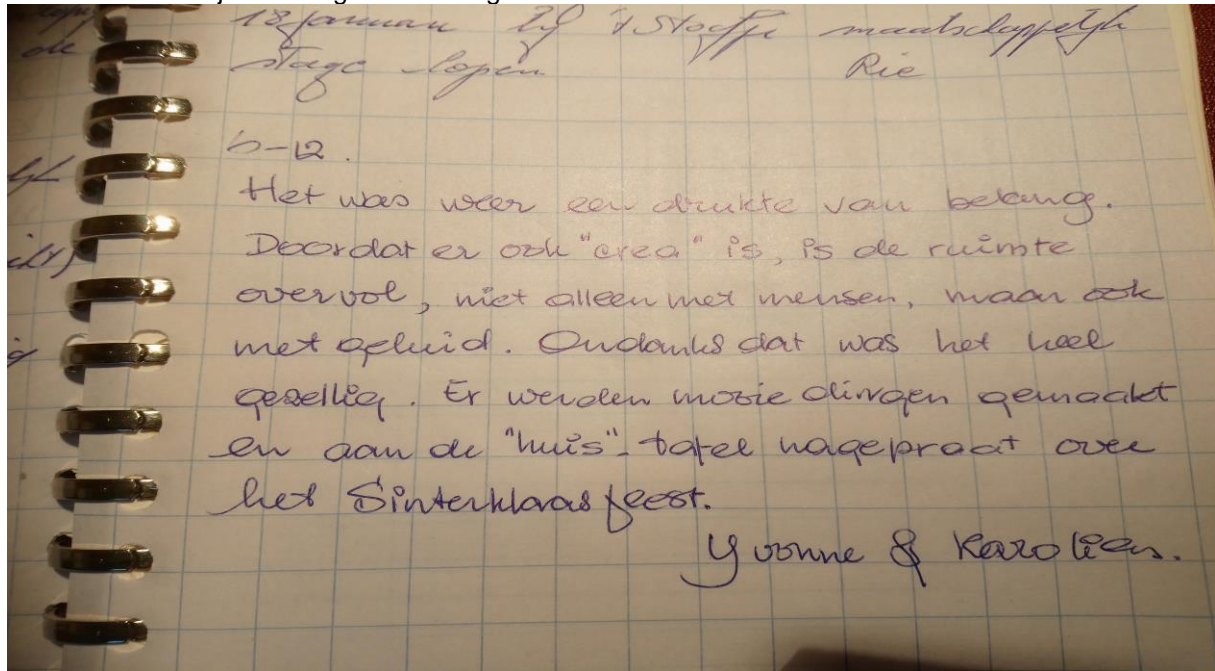 18 januari
maatschappelijk
stage lopen Rie
6-12.
Het was weer een drukte van belang.
Doordat er ook "crea" is, is de ruimte
overvol, niet alleen met mensen, maar ook
met geluid. Ondanks dat was het heel
gezellig. Er werden mooie dingen gemaakt
en aan de "huis"-tafel nagepraat over
het Sinterklaasfeest.
Yvonne & Karolien.